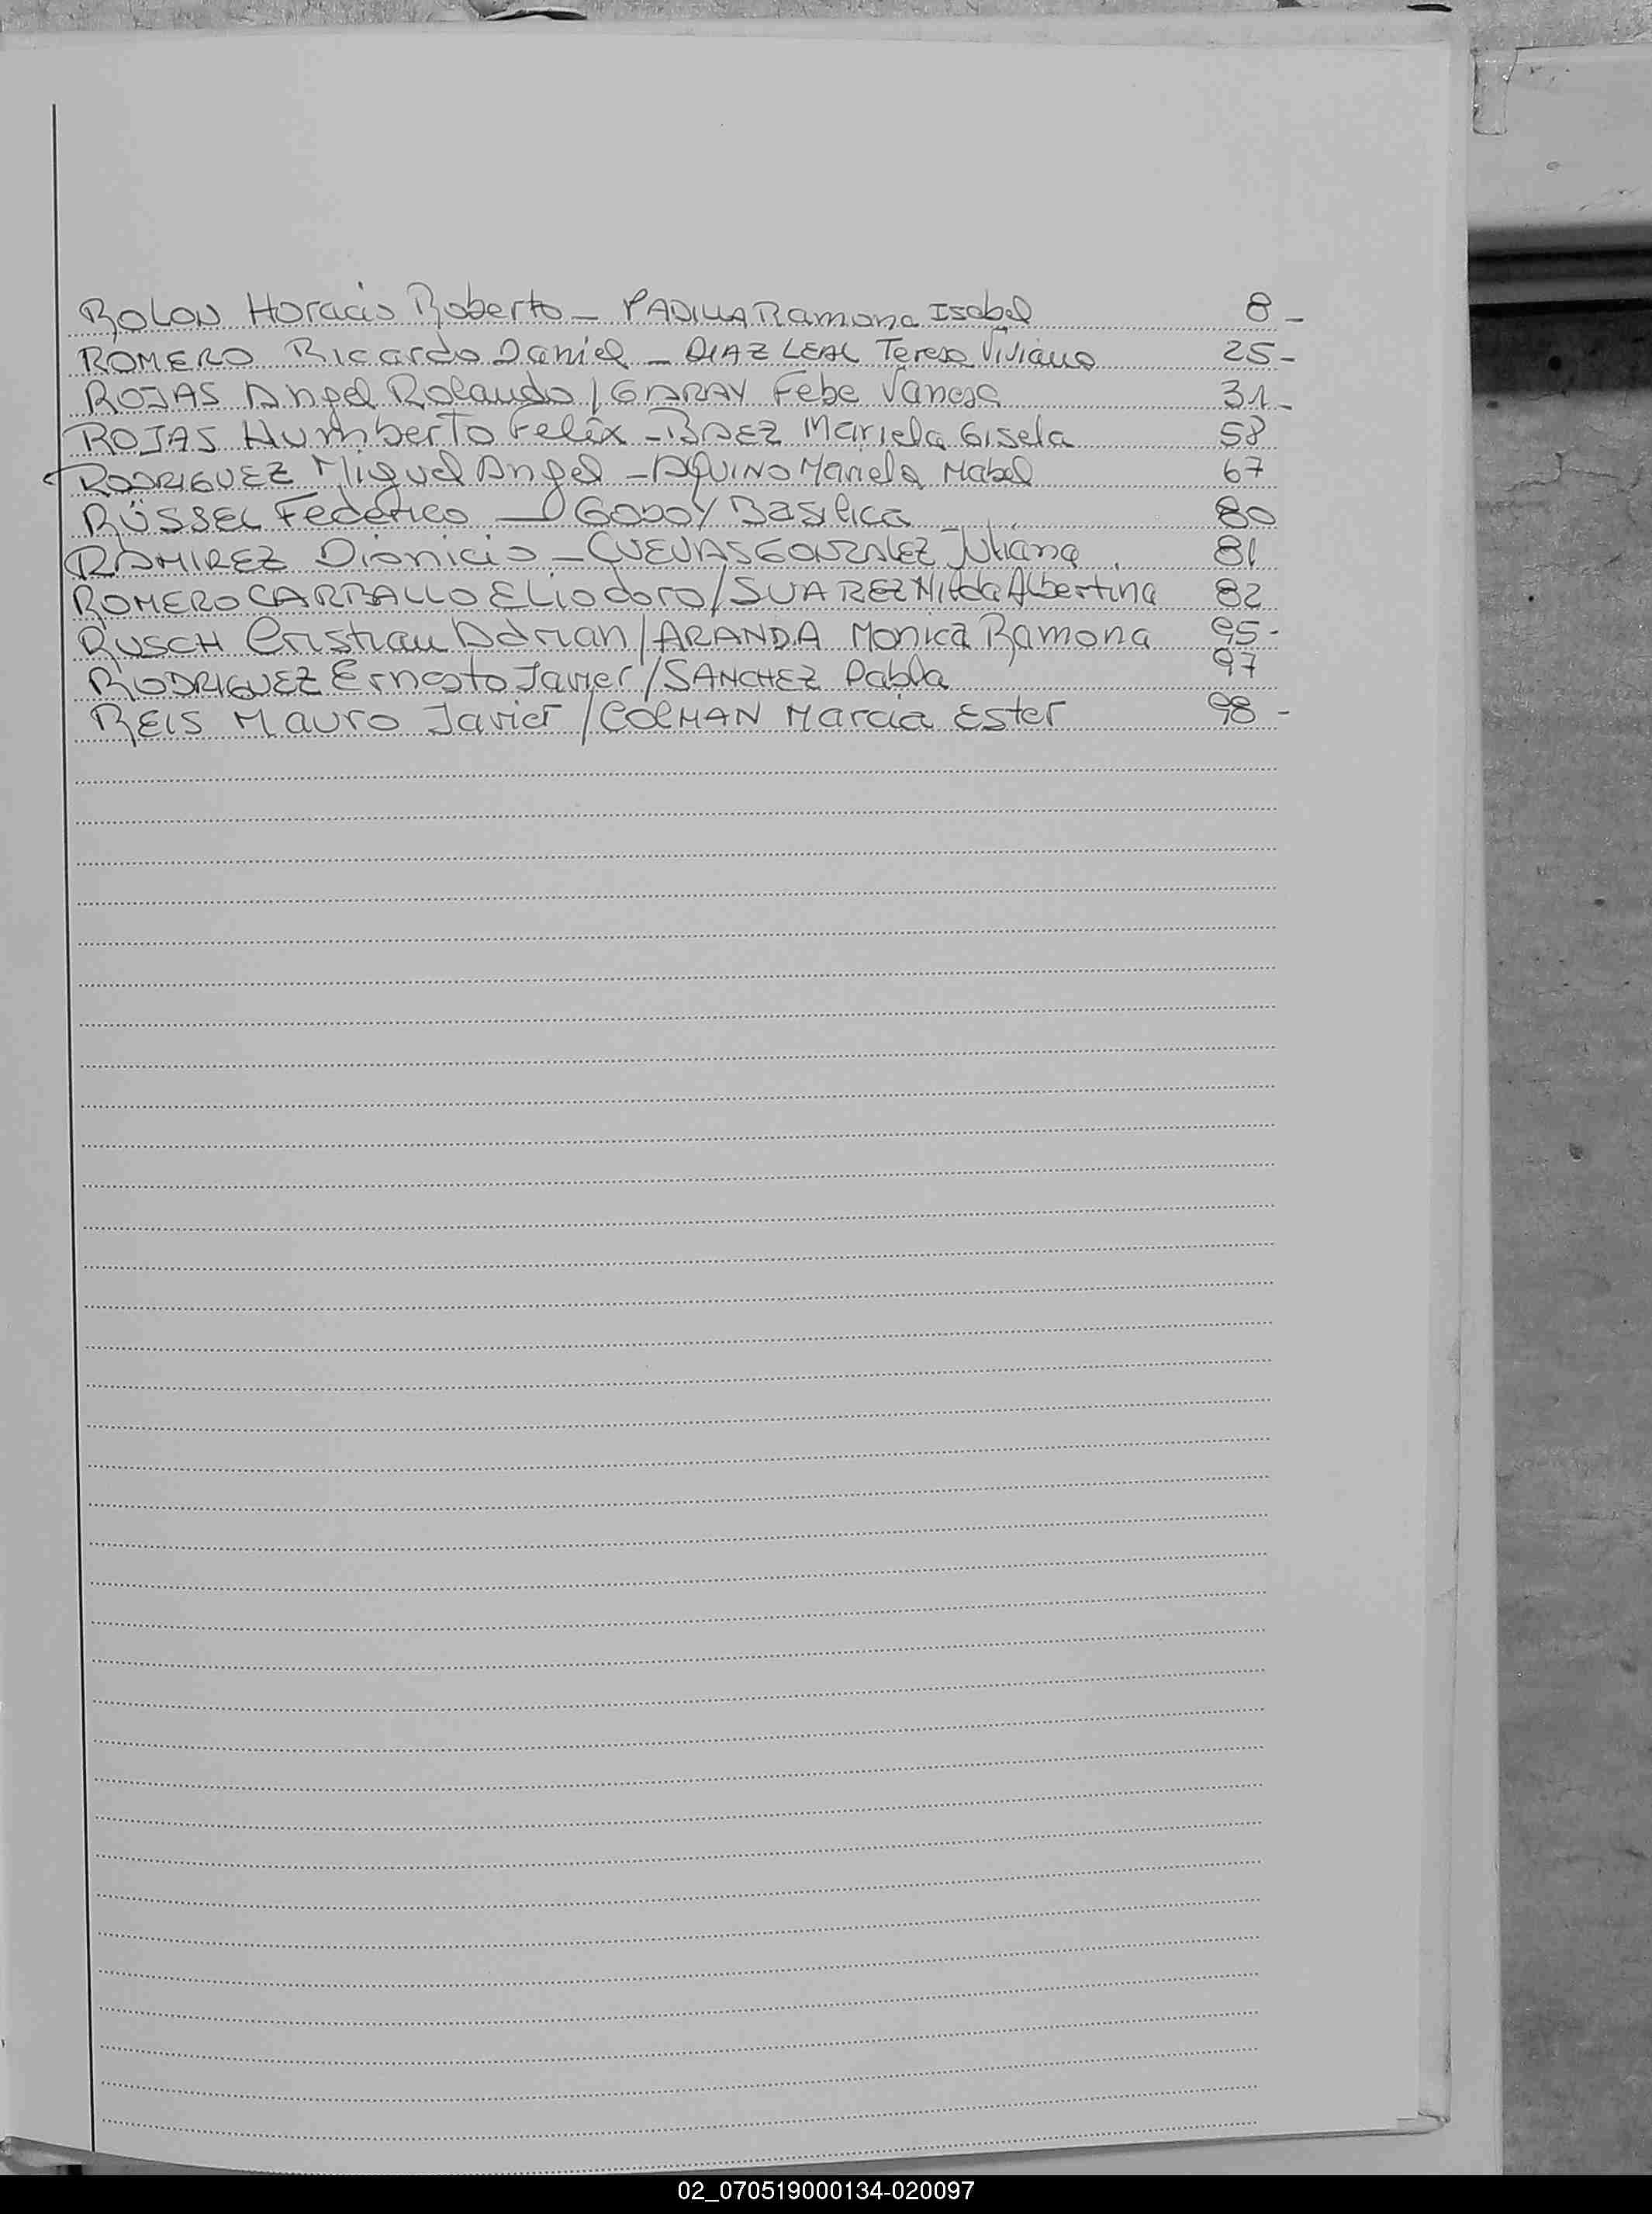 ROLON Horacio Roberto - PADILLA Ramona Isabel 8 -
ROMERO Ricardo Daniel - DIAZ LEAL Teresa Viviana 25 -
ROJAS Angel Rolando / GARAY Febe Vanesa 31 -
ROJAS Humberto Felix - BAEZ Mariela Gisela 58
RODRIGUEZ Miguel Angel - AQUINO Mariela Mabel 67
RÜSSEL Federico - GODOY Basilica 80
RAMIREZ Dionicio - CUEVAS GONZALEZ Juliana 81
ROMERO CARBALLO Eliodoro / SUAREZ Nilda Albertina 82
RUSCH Cristian Adrian / ARANDA Monica Ramona 95 -
RODRIGUEZ Ernesto Javier / SANCHEZ Pabla 97
REIS Mauro Javier / COLMAN Marcia Ester 98 -
02_070519000134-020097